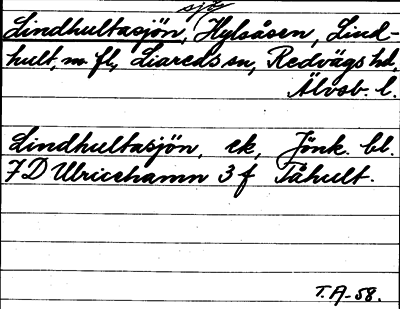 sjö
Lindhultasjön, Hylsåsen, Lind-
hult, m. fl., Liareds sn, Redvägs hd,
Älvsb. l.
Lindhultasjön, ek, Jönk. bl.
7 D Ulricehamn 3 f Tåhult.
T.A-58.